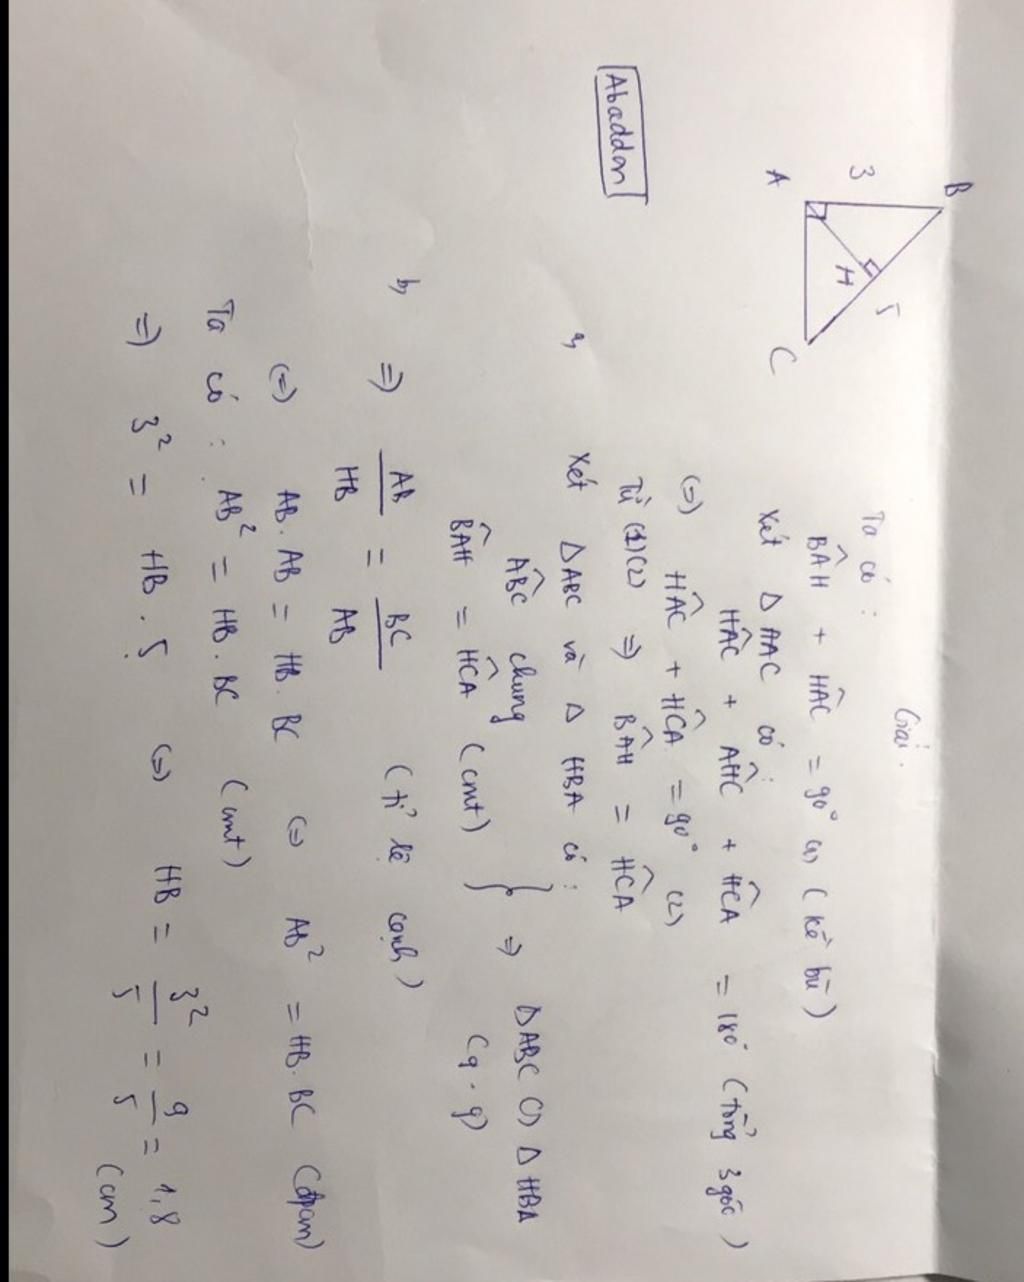 Giải.
B
3
5
H
A
C
Abaddon
Ta có :
BÂH + HÂC = 90° (1) (kề bù)
Xét Δ AAC có :
HÂC + AĤC + HĈA = 180° (tổng 3 góc)
(=) HÂC + HĈA = 90° (2)
Từ (1)(2) => BÂH = HĈA
a, Xét ΔABC và Δ HBA có :
AB̂C chung
BÂH = HĈA (cmt)
} => ΔABC ∽ Δ HBA
(g.g)
b, => AB/HB = BC/AB (tỉ lệ cạnh)
(=) AB. AB = HB. BC (=) AB² = HB. BC (đpcm)
Ta có : AB² = HB. BC (cmt)
=) 3² = HB. 5 (=) HB = 3²/5 = 9/5 = 1,8
(cm)